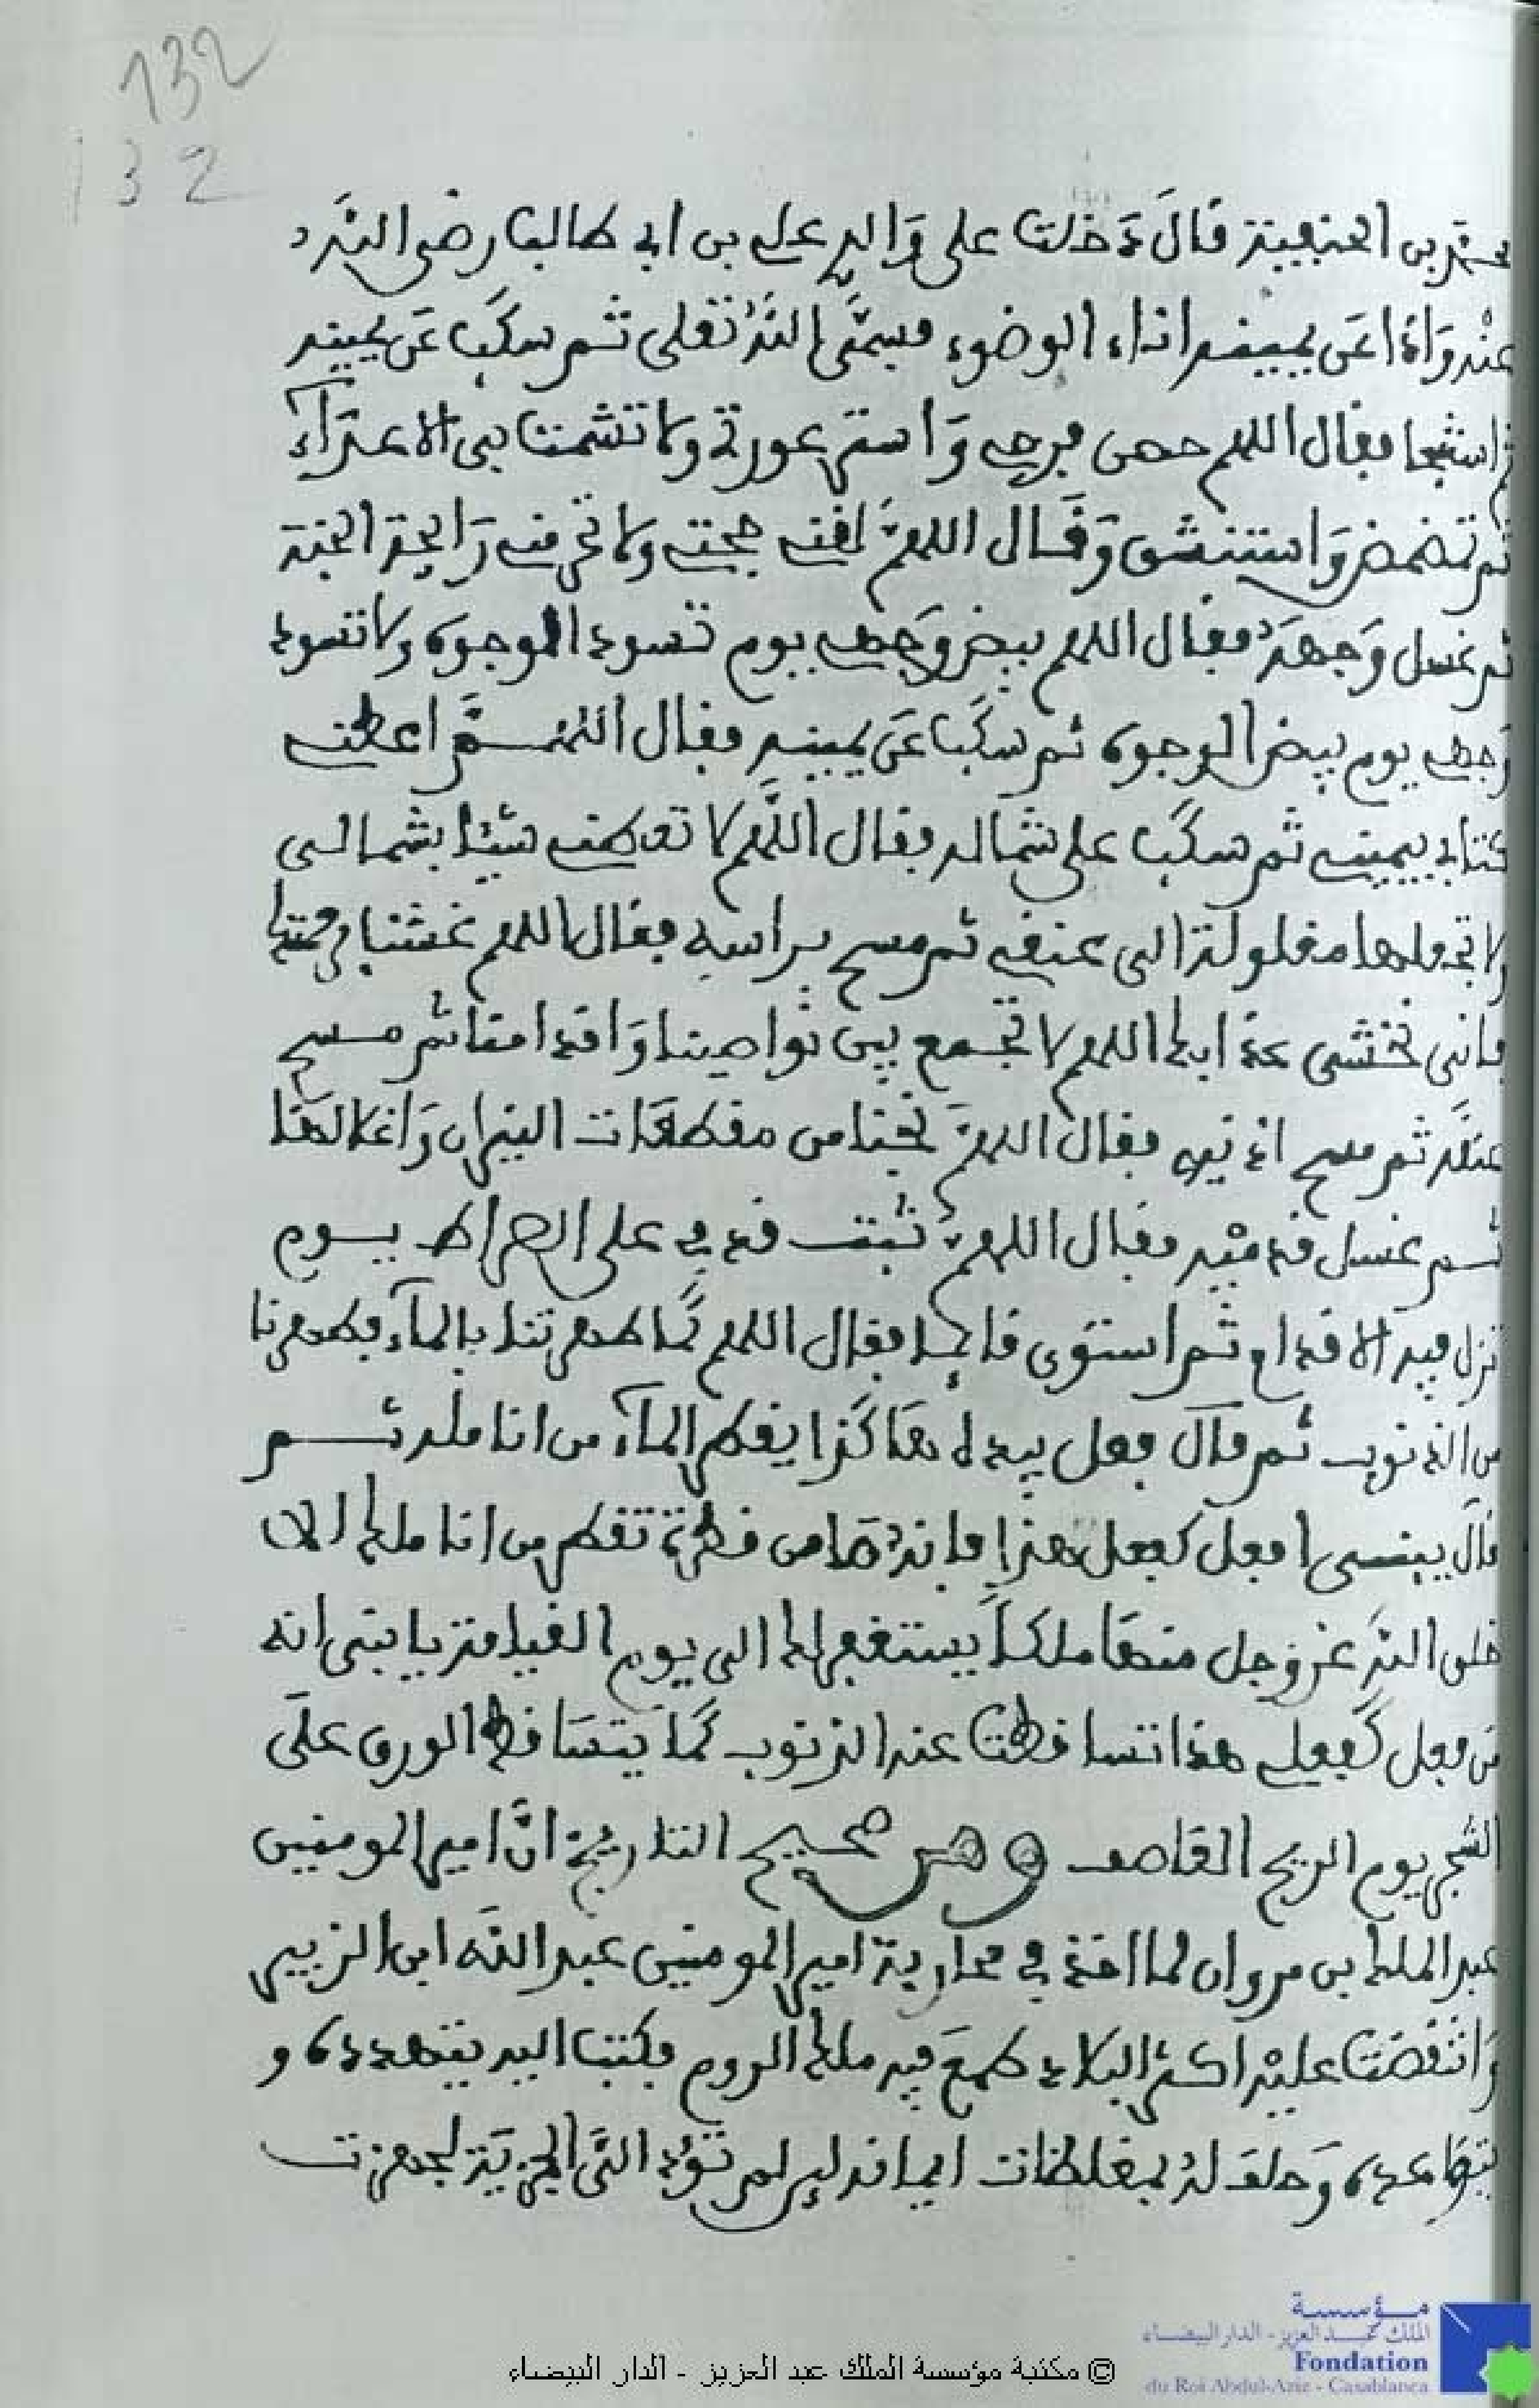 132
132
محمد بن الحنفية قال دخلت على والد علي بن ابي طالب رضي الله
عنه واذا عن يمينه اناء الوضوء فسمى الله تعلى ثم سكب عن يمينه
ثم استنجا فقال اللهم حصن فرجي واستر عورتي ولا تشمت بي الاعداء
ثم تمضمض واستنشق وقال اللهم لقني حجتي ولا تحرمني رايحة الجنة
ثم غسل وجهه فقال اللهم بيض وجهي يوم تسود الوجوه ولا تسود
وجهي يوم تبيض الوجوه ثم سكب عن يمينه فقال اللهم اعطني
كتابي بيميني ثم سكب على شماله فقال اللهم لا تعطني شيئا بشمالي
ولا تجعلها مغلولة الى عنقي ثم مسح براسه فقال اللهم غشنا رحمتك
فاني نخشى عذابك اللهم لا تجمع بين نواصينا واقدامنا ثم مسح
عنقه ثم مسح اذنيه فقال اللهم نجنا من مقطعات النيران واغلالها
ثم غسل قدميه فقال اللهم ثبت قدمي على الصراط يوم
تزل فيه الاقدام ثم استوى قايما فقال اللهم كما طهرتنا بالماء فطهرنا
من الذنوب ثم قال فعل بيده هاكذا يقطر الماء من انامله ثم
قال يبنى افعل كفعل هذا فانه ما من قطرة تقطر من اناملك الا
خلق الله عز وجل منها ملكا يستغفر لك الى يوم القيامة يا بني انه
من فعل كفعلي هذا تساقطت عنه الذنوب كما يتساقط الورق على
الشجر يوم الريح القاصف ومن صحيح التاريخ ان امير المومنين
عبد الملك بن مروان لما اخذ في محاربة امير المومنين عبد الله ابن الزبير
وانتقضت عليه اكثر البلاد طمع فيه ملك الروم فكتب اليه يتهدده و
يتواعده وحلف له بمغلظات ايمانه لين لم تؤد الى الجزية لجهزت
© مكتبة مؤسسة الملك عبد العزيز - الدار البيضاء
مؤسسة
الملك عبد العزيز - الدار البيضاء
Fondation
du Roi Abdul-Aziz - Casablanca